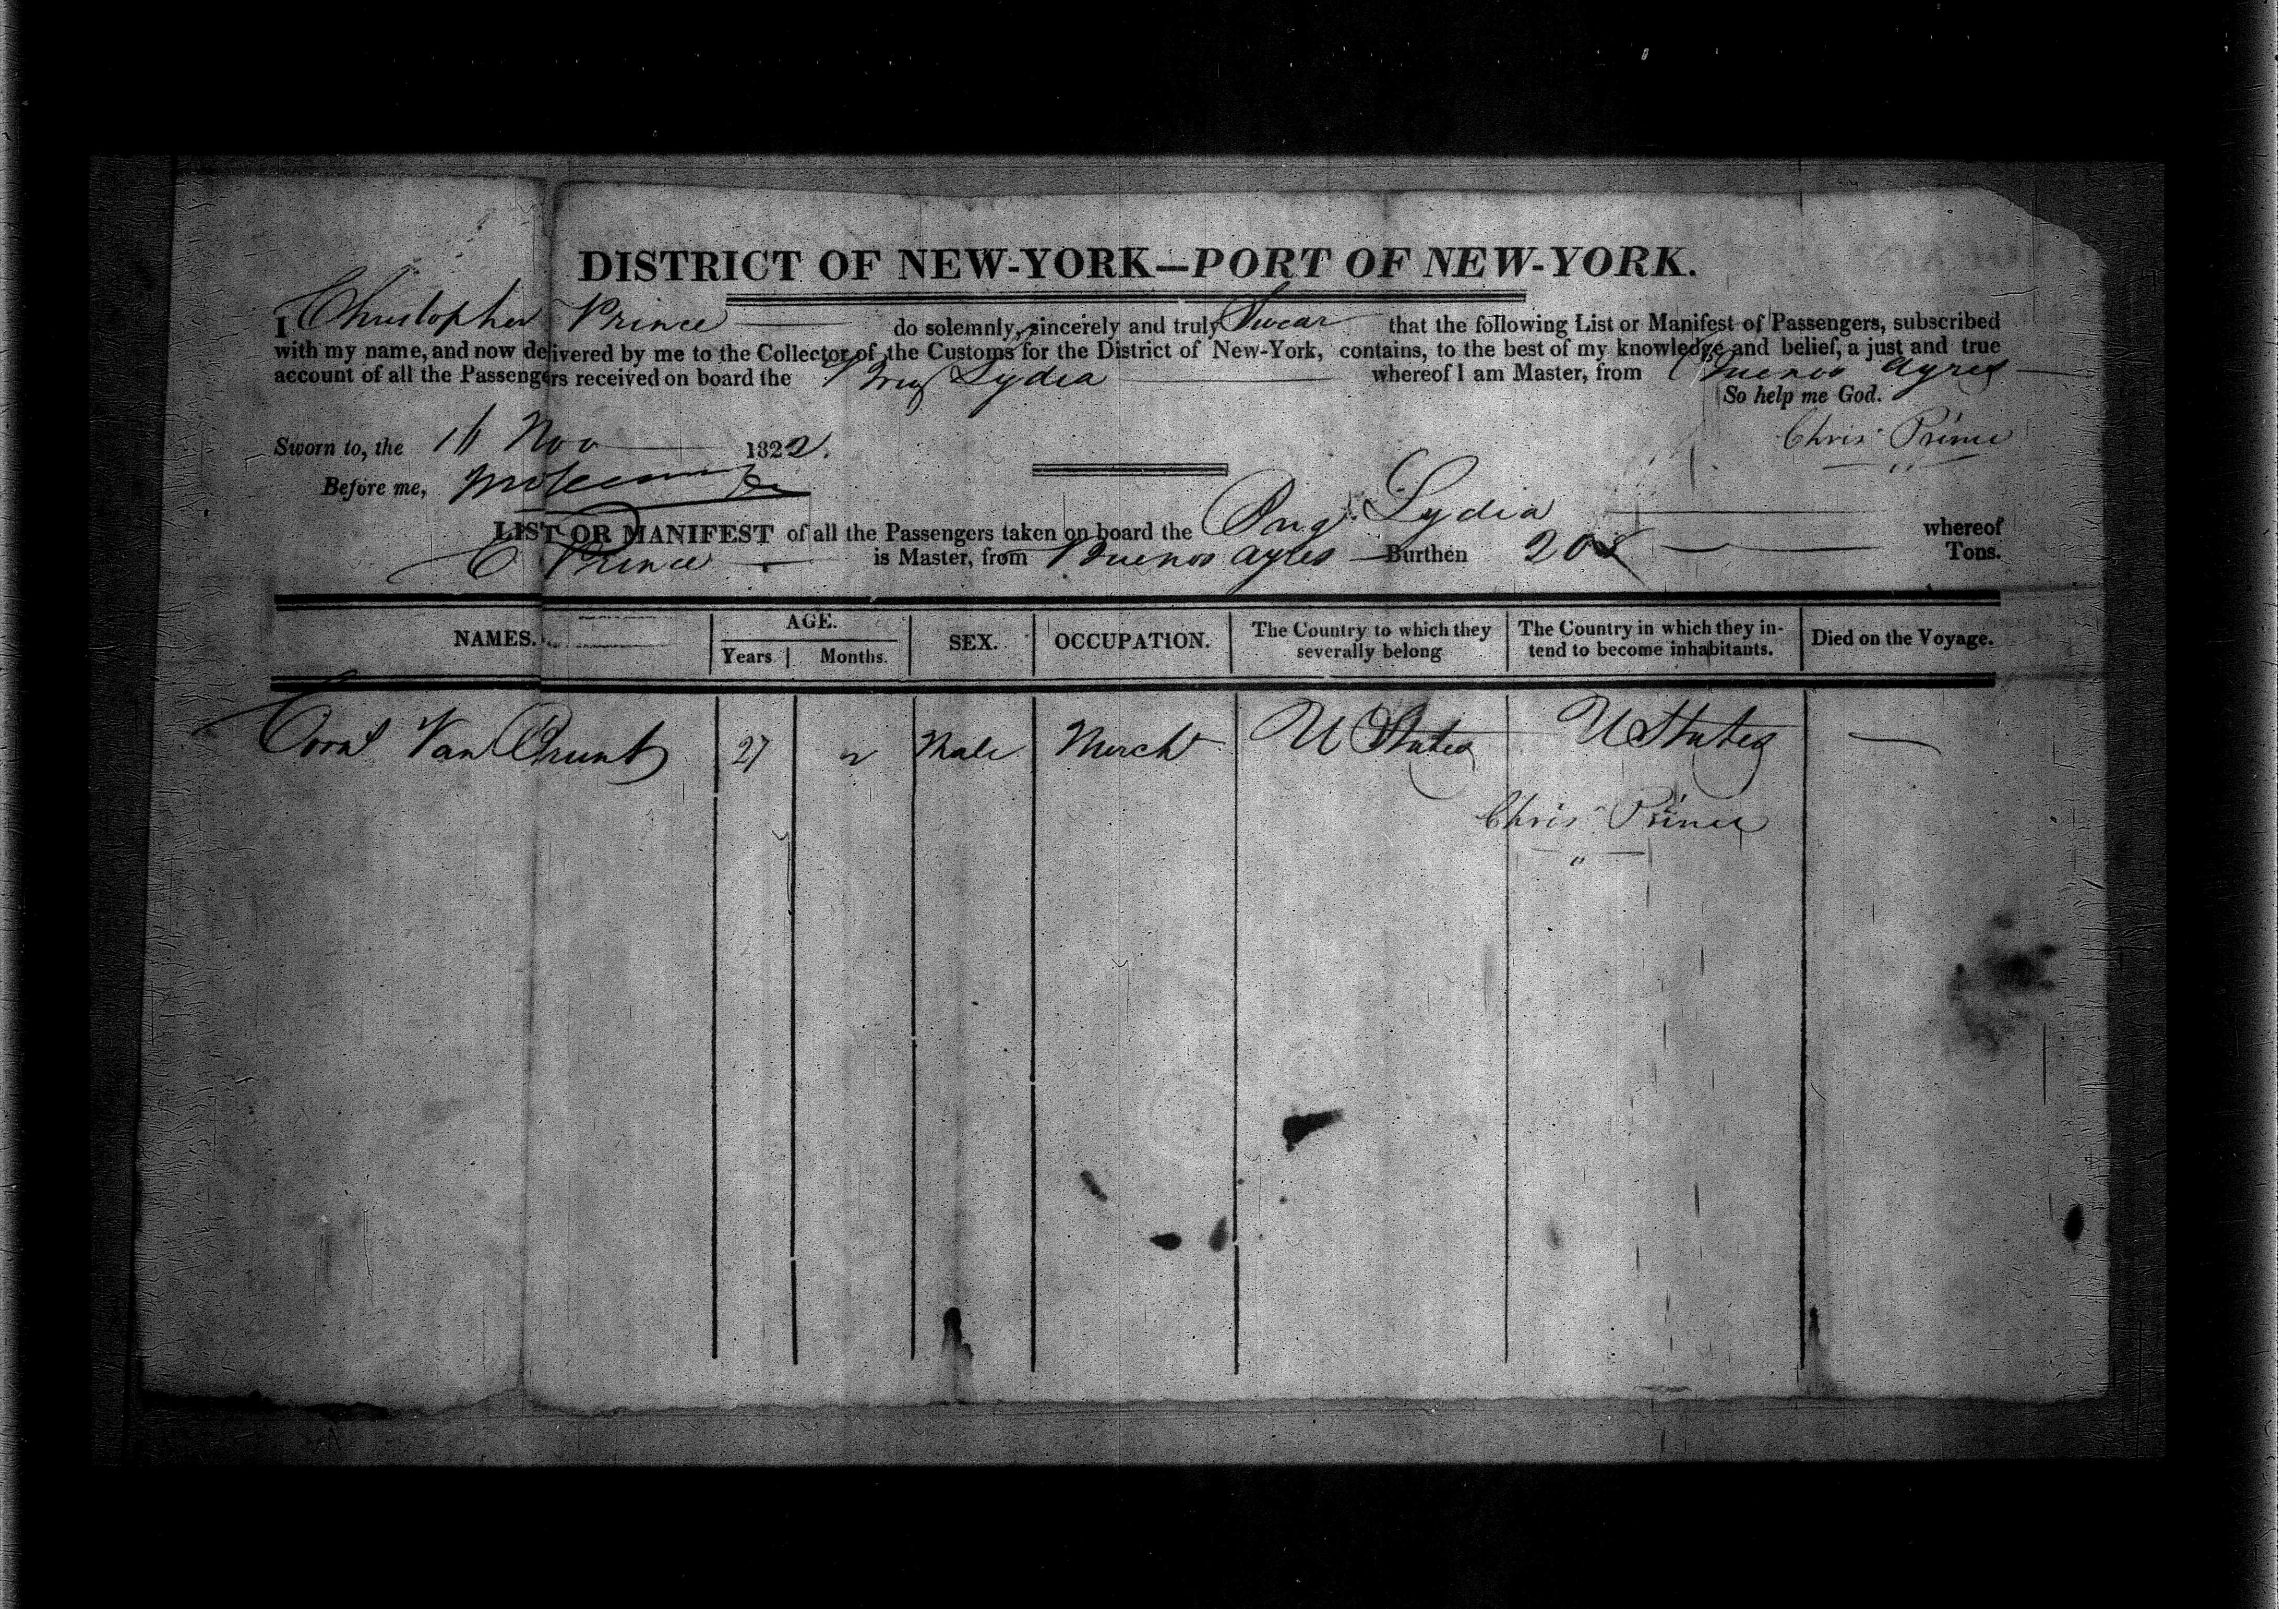 DISTRICT OF NEW-YORK—PORT OF NEW-YORK.
I Christopher Prince do solemnly, sincerely and truly Swear that the following List or Manifest of Passengers, subscribed
with my name, and now delivered by me to the Collector of the Customs for the District of New-York, contains, to the best of my knowledge and belief, a just and true
account of all the Passengers received on board the Brig Lydia whereof I am Master, from Buenos Ayres
So help me God.
Sworn to, the Nov 1822.
Chris Prince
Before me,
LIST OR MANIFEST of all the Passengers taken on board the Brig Lydia whereof
C Prince is Master, from Buenos Ayres Burthen Tons.
NAMES. AGE. Years Months. SEX. OCCUPATION. The Country to which they severally belong The Country in which they intend to become inhabitants. Died on the Voyage.
Van Brunt 27 Male Mercht U States U States —
Chris Prince